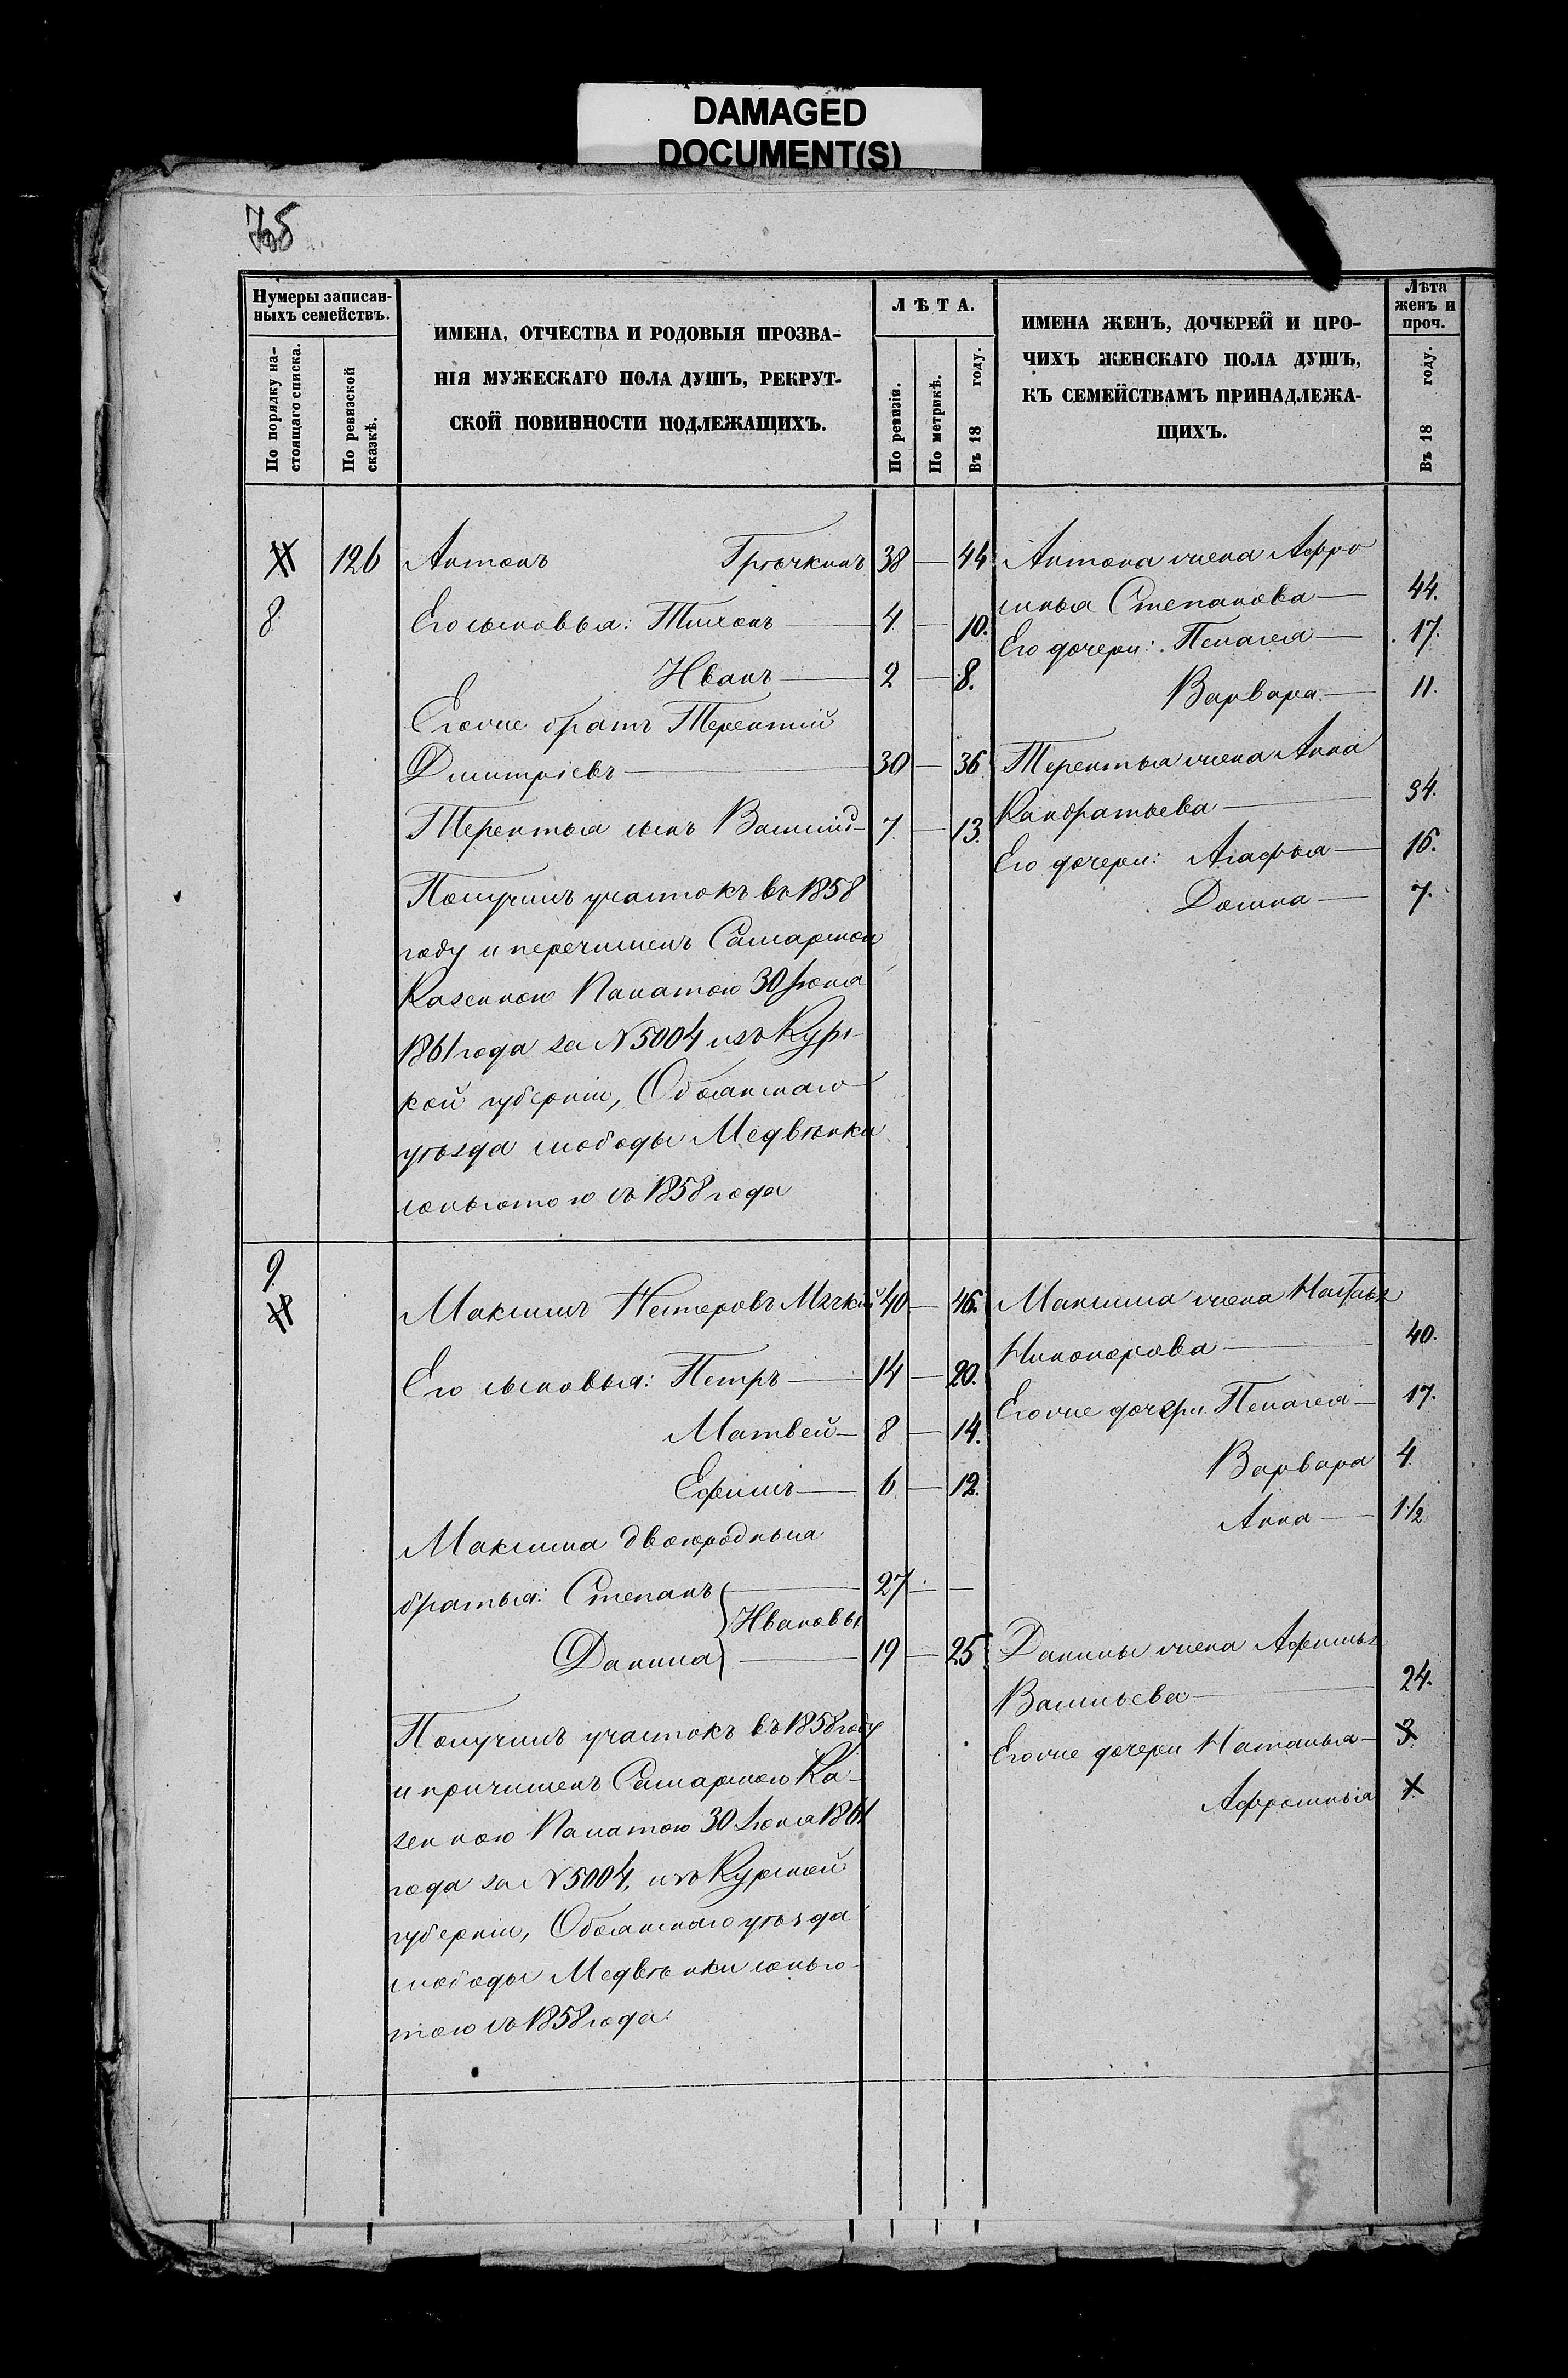 DAMAGED
DOCUMENT(S)
Нумеры записан-
ныхъ семействъ.
По порядку на-
стоящаго списка.
По ревизской
сказкѣ.
ИМЕНА, ОТЧЕСТВА И РОДОВЫЯ ПРОЗВА-
НІЯ МУЖЕСКАГО ПОЛА ДУШЪ, РЕКРУТ-
СКОЙ ПОВИННОСТИ ПОДЛЕЖАЩИХЪ.
ЛѢТА.
По ревизіи.
По метрикѣ.
Въ 18 году.
ИМЕНА ЖЕНЪ, ДОЧЕРЕЙ И ПРО-
ЧИХЪ ЖЕНСКАГО ПОЛА ДУШЪ,
КЪ СЕМЕЙСТВАМЪ ПРИНАДЛЕЖА-
ЩИХЪ.
Лѣта
женъ и
проч.
Въ 18 году.
8 126 Антонъ 38 — 44
Его сыновья: Тихонъ — 4 — 10.
Иванъ — 2 — 8.
Егоже братъ Терентій
Дмитріевъ — 30 — 36
Терентья сынъ Василій — 7 — 13.
Получилъ участокъ въ 1858
году и перечисленъ Самарской
Казенною Палатою 30 Іюня
1861 года за N 5004 изъ Курс-
кой губерніи, Обоянскаго
уѣзда слободы Медвѣнки
льготою съ 1858 года
Антона жена Афро
синья Степанова — 44.
Его дочери: Пелагея — 17.
Варвара — 11.
Терентья жена Анна
Кандратьева — 34.
Его дочери: Агафья — 15.
Домна — 7.
9
Максимъ Нестеровъ Мягкій 40 — 46.
Его сыновья: Петръ — 14 — 20.
Матвей — 8 — 14.
Ефимъ — 6 — 12.
Максима двоюродныя
братья: Степанъ — 27 — —
Ивановы
Данила — 19 — 25
Получилъ участокъ въ 1858 году
и причисленъ Самарскою Ка-
зенною Палатою 30 Іюня 1861
года за N 5004, изъ Курской
губерніи, Обоянскаго уѣзда
слободы Медвѣнки
съ 1858 года.
Максима жена Наталья
Никонорова — 40.
Егоже дочери Пелагея — 17.
Варвара 4
Анна — 1 1/2
Данилы жена Афимья
Васильева — 24.
Егоже дочери Наталья — 3.
Афросинья